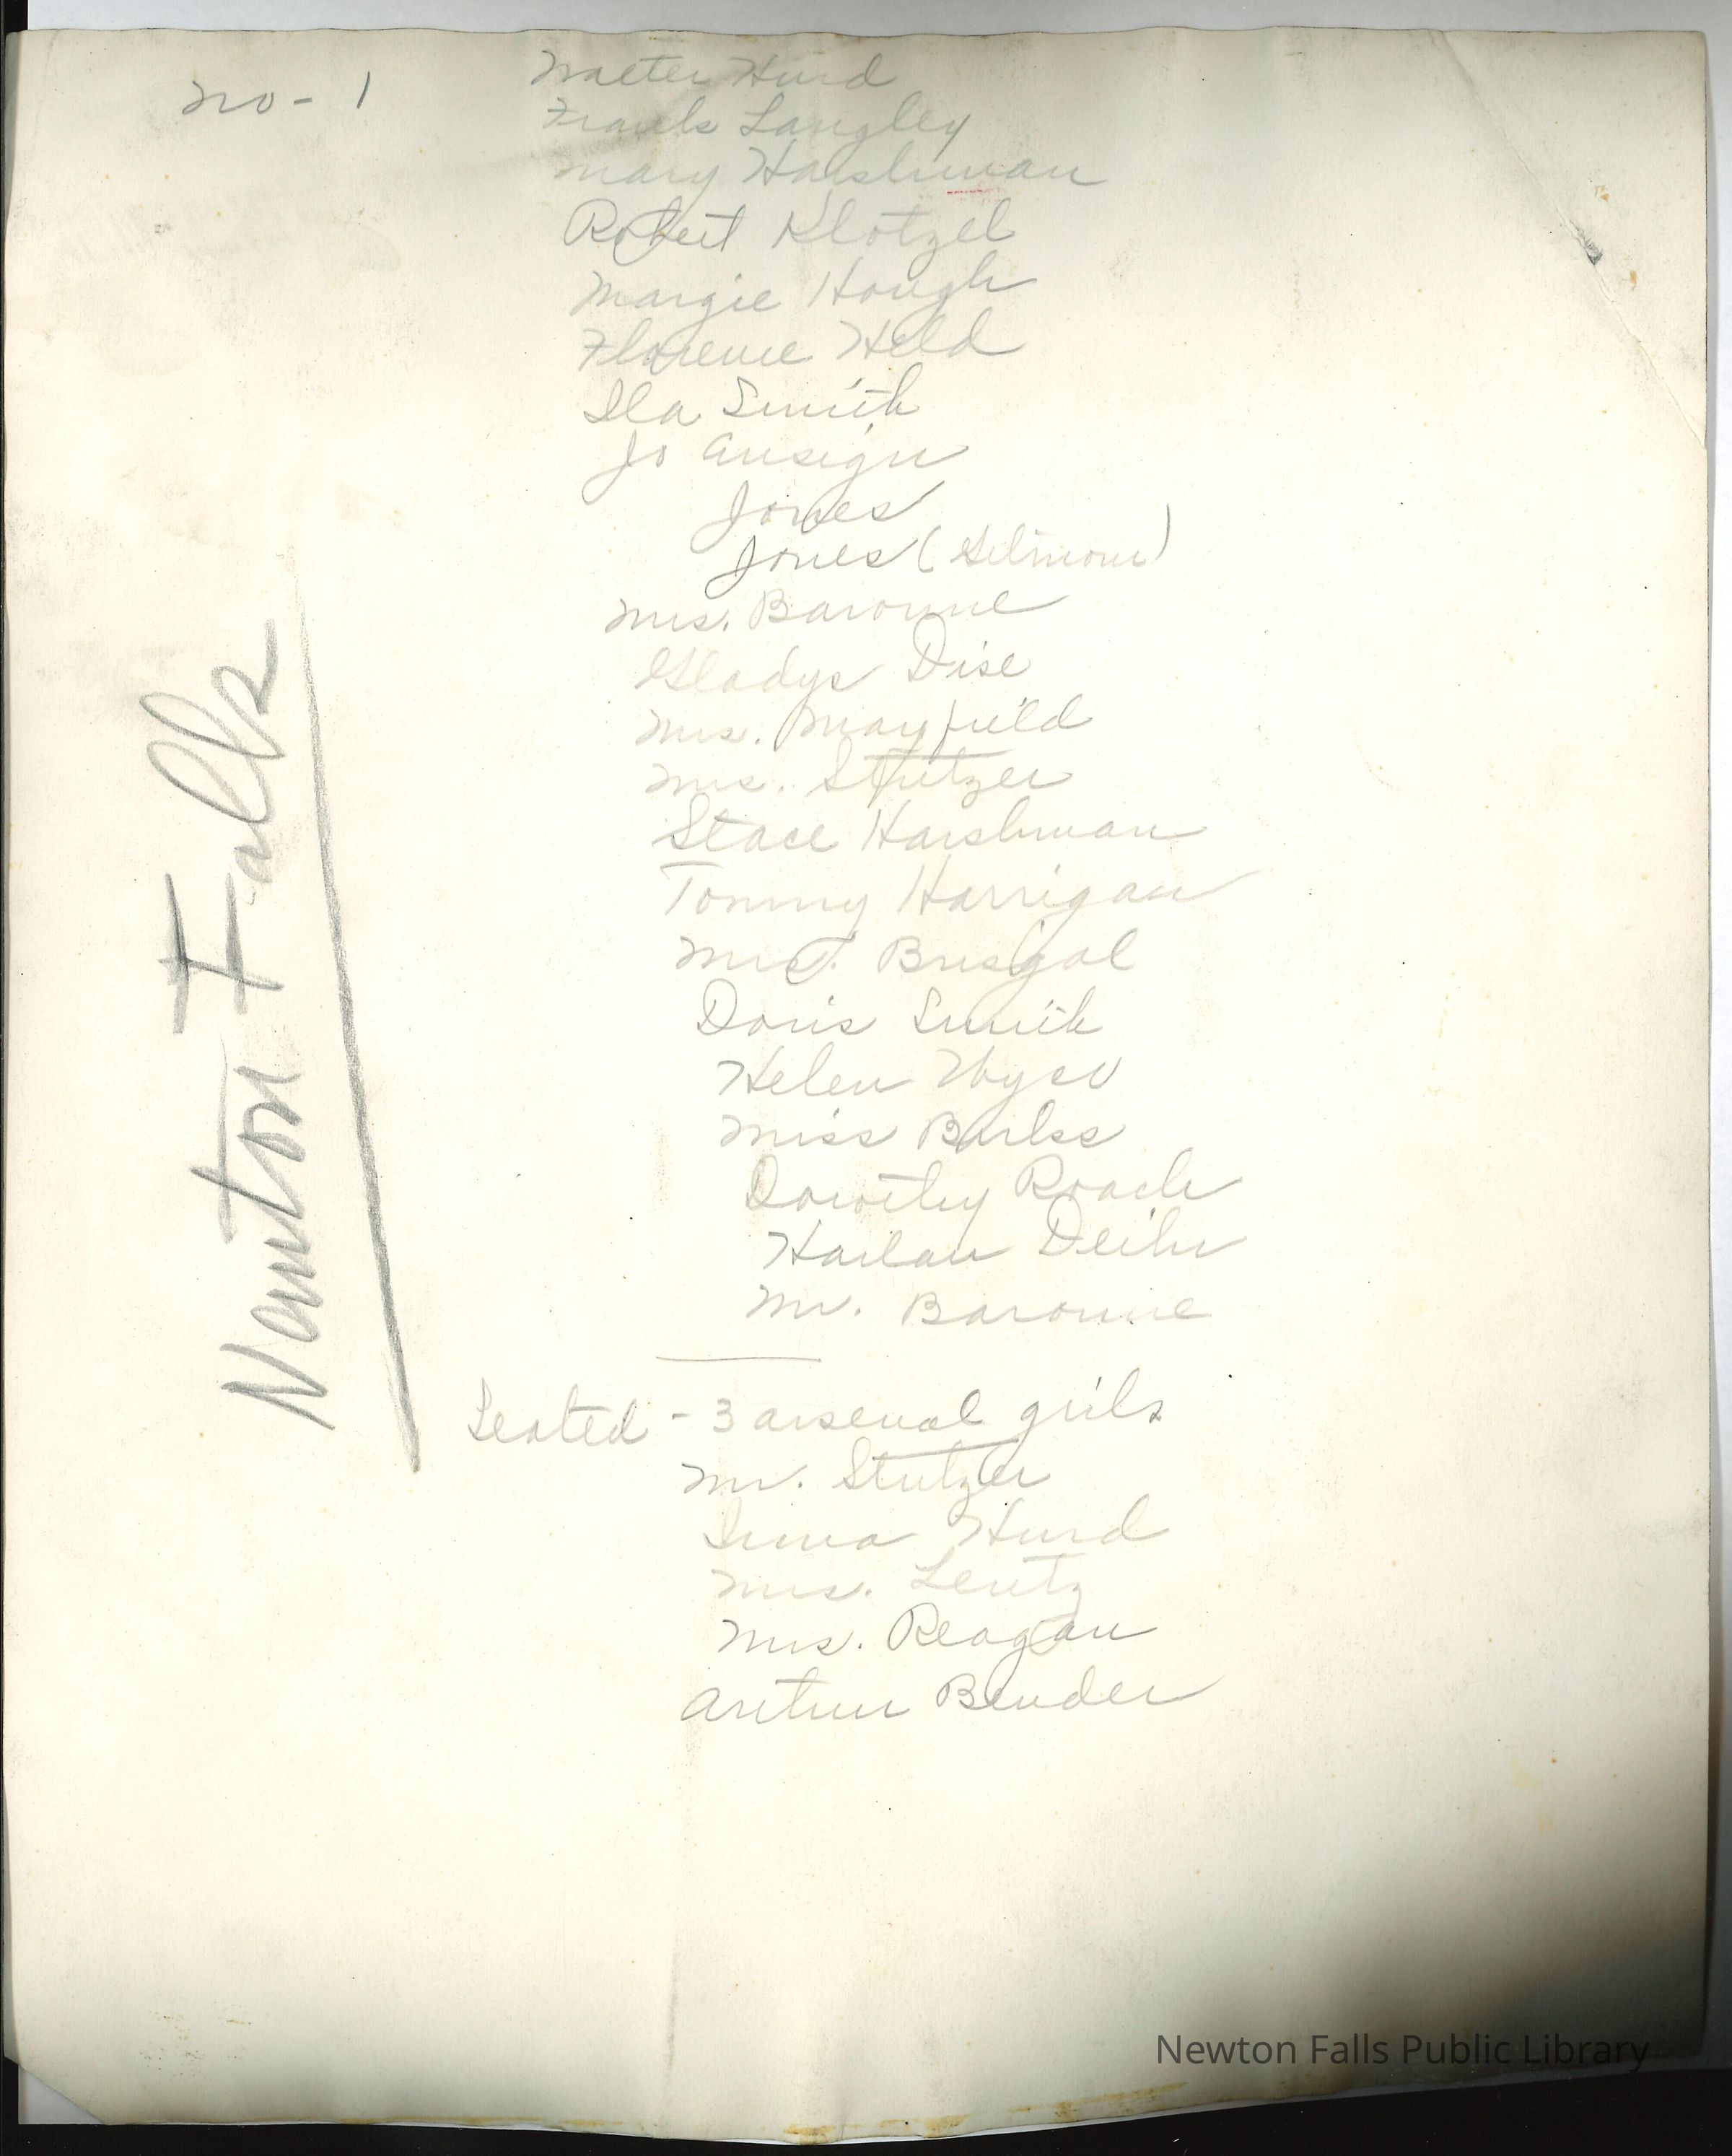 No - 1
Walter Hurd
Frank Langley
Mary Harshman
Robert Klotzel
Margie Hough
Florence Held
Ila Smith
Jo Ansign
Jones
Jones (Gilmour)
Mrs. Baronne
Gladys Dise
Mrs. Mayfield
Mrs. Stutzer
Stace Harshman
Tommy Harrigan
Brisgal
Doris Smith
Helen
Miss
Dorothy Roach
Harlan Deihr
Mr. Baronne
Seated - 3 arsenal girls
Mr. Stutzer
Irma Hurd
Mrs. Lentz
Mrs. Reagan
Arthur Bender
Newton Falls
Newton Falls Public Library